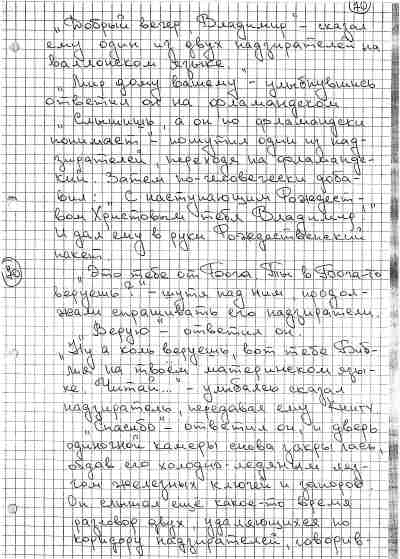 70
„Добрый вечер, Владимир" – сказал
ему один из двух надзирателей на
валлонском языке.
„Мир дому вашему" – улыбнувшись
ответил он на фламандском
„Слышишь, а он по фламандски
понимает" – пошутил один из над-
зирателей, переходя на фламандс-
кий. Затем по-человечески доба-
вил: „С наступающим Рождест-
вом Христовым тебя Владимир",
И дал ему в руки Рождественский
пакет.
70
„Это тебе от Бога. Ты в Бога-то
веруешь?" – шутя над ним, продол-
жали спрашивать его надзиратели.
„Верую" – ответил он.
„Ну а коль веруешь, вот тебе Биб-
лия на твоём материнском язы-
ке. Читай..." – улыбаясь сказал
надзиратель, передавая ему книгу
„Спасибо" – ответил он, и дверь
одиночной камеры снова закрылась,
обдав его холодно-ледяным ляз-
гом железных ключей и запоров.
Он слышал ещё какое-то время
разговор двух, удаляющихся по
коридору надзирателей, говорив-